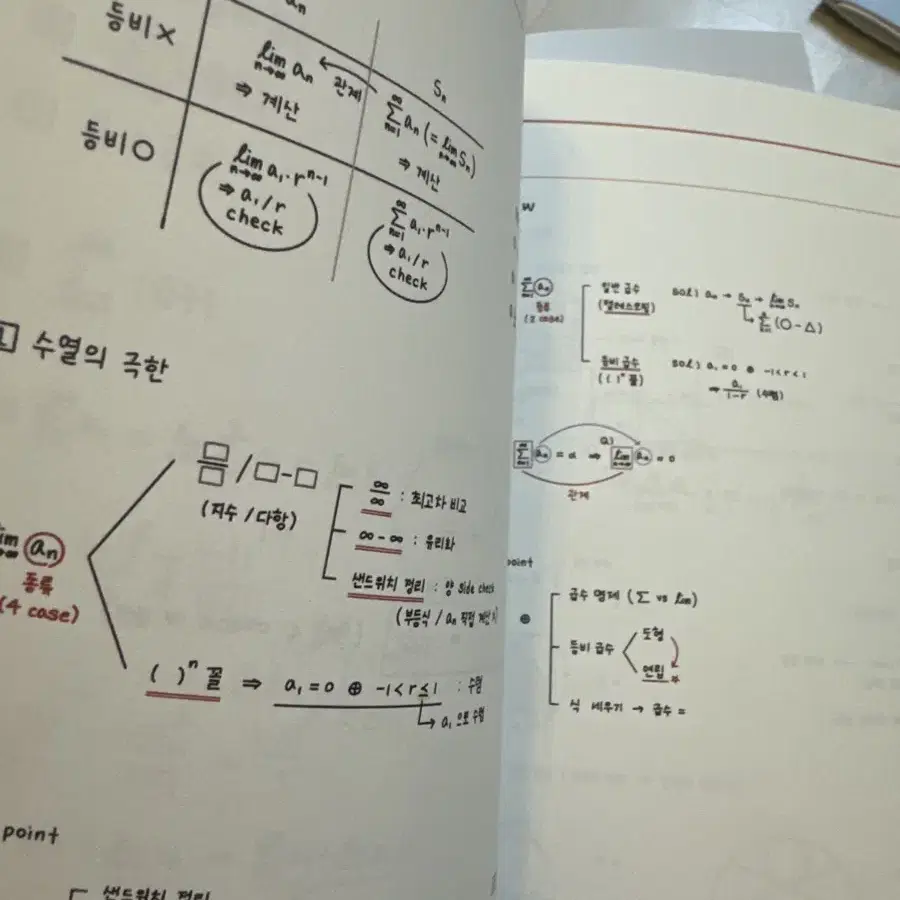 an
등비 X
lim n→∞ an
⇒ 계산
관계
Sn
∑ n=1 ∞ an (= lim n→∞ Sn)
⇒ 계산
등비 O
lim n→∞ a₁·rⁿ⁻¹
⇒ a₁/r
check
∑ n=1 ∞ a₁·rⁿ⁻¹
⇒ a₁/r
check
1 수열의 극한
lim n→∞ an
종류
(4 case)
□/□ / □-□
(지수 / 다항)
∞/∞ : 최고차 비교
∞-∞ : 유리화
샌드위치 정리 : 양 side check
(부등식 / an 직접
( )ⁿ 꼴 ⇒ a₁=0 ⊕ -1<r≤1 : 수렴
→ a₁으로 수렴
point
샌드위치 정리
w
∑ n=1 ∞ an
종류
(2 case)
일반 급수
(텔레스코핑)
sol) an → Sn → lim Sn
∑(O-△)
등비 급수
(( )ⁿ 꼴)
sol) a₁=0 ⊕ -1<r<1
⇒ a₁/1-r (수렴)
∑ n=1 ∞ an = α ⇒ lim n→∞ an = 0
관계
point
⊕
급수 명제 (∑ vs lim)
등비 급수
도형
연립 *
식 세우기 → 급수 =